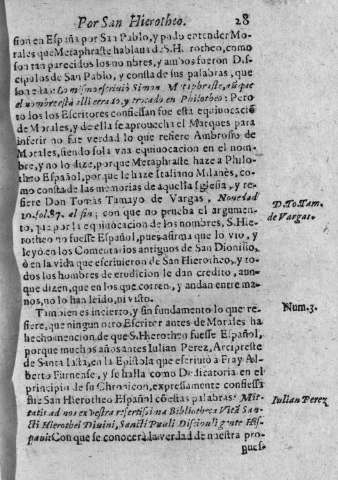 Por San Hierotheo. 28
sion en España por San Pablo, y pudo entender Mo-
rales que Metaphraste hablaua d S. H. rotheo, como
son tan parecidos los no nbres, y ambos fueron D. s-
cipulos de San Pablo, y consta de sus palabras, que
son estas: Lo mismo escriuiò Simon Metaphraste, aũque
el nombre està alli errado, y trocado en Philotheo: Pero
todos los Escritores confiessan fue esta equiuocaciõ
de Morales, y de ella se aprouecha el Marques para
inferir no fue verdad lo que refiere Ambrosio de
Morales, siendo solo vna equiuocacion en el nom-
bre, y no lo dize, porque Metaphraste haze a Philo-
theo Español, porque le haze Italiano Milanès, co-
mo consta de las memorias de aquella Iglesia, y re-
fiere Don Tomàs Tamayo de Vargas, Nouedad
10. fol. 87. al fin; con que no prueba el argumen-
to, que por la equiuocacion de los nombres, S. Hie-
rotheo no fuesse Español, pues afirma que lo viò, y
leyò en los Comentarios antiguos de San Dionisio,
ò en la vida que escriuieron de San Hierotheo, y to-
dos los hombres de erudicion le dan credito, aun-
que dizen, que en los que corren, y andan entre ma-
nos, no lo han leido, ni visto.
Tambien es incierto, y sin fundamento lo que re-
fiere, que ningun otro Escritor antes de Morales ha
hecho mencion, de que S. Hierotheo fuesse Español,
porque muchos años antes Iulian Perez, Arcipreste
de Santa Iusta, en la Epistola que escriuiò a Fray Al-
berto Siniense, y se halla como Dedicatoria en el
principio de su Chronicon, expressamente confiessa
fue San Hierotheo Español cõ estas palabras: Mit-
tatis ad nos ex vestra refertissima Bibliotheca Vitã San-
cti Hierothei Diuini, Sancti Pauli Discipuli gente His-
pani: Con que se conocerà la verdad de nuestra pro-
pues-
D. To. Tam.
de Vargas.
Num. 3.
Iulian Perez